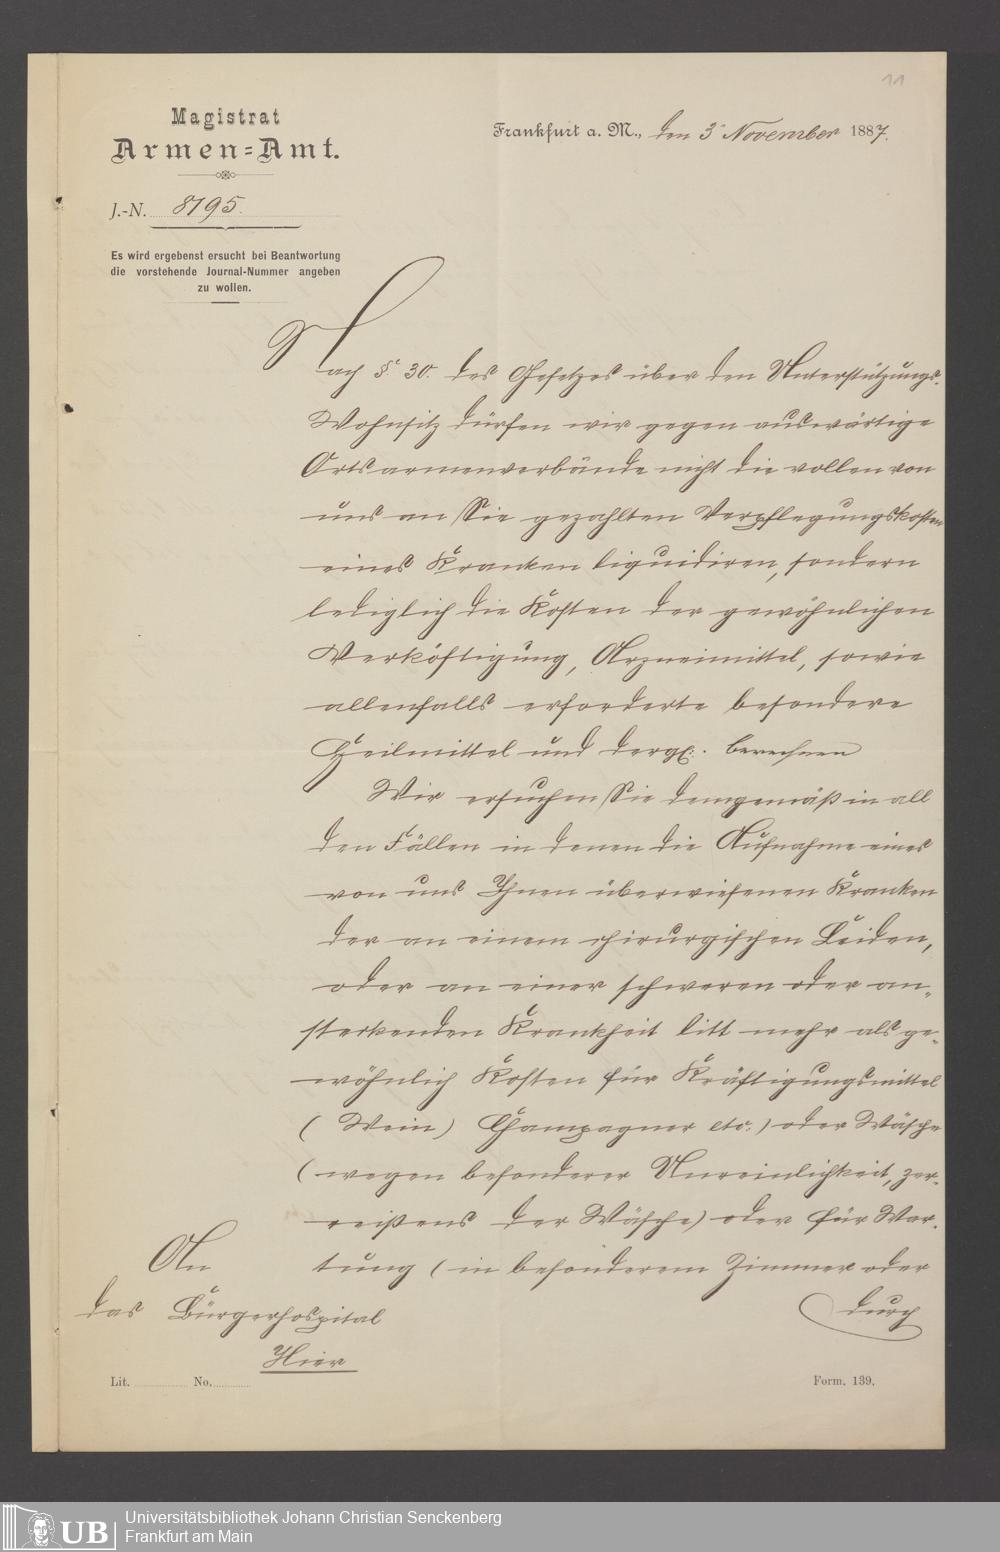 11
Magistrat
Armen=Amt.
Frankfurt a. M., den 3ᵗ November 1887.
J.-N. 8195.
Es wird ergebenst ersucht bei Beantwortung
die vorstehende Journal-Nummer angeben
zu wollen.
Nach §. 30. des Gesetzes über den Unterstützungs-
Wohnsitz dürfen wir gegen auswärtige
Ortsarmenverbände nicht die vollen von
uns an Sie gezahlten Verpflegungskosten
eines Kranken liquidiren, sondern
lediglich die Kosten der gewöhnlichen
Verköstigung, Arzneimittel, sowie
allenfalls erforderte besondere
Heilmittel und dergl. berechnen
Wir ersuchen Sie demgemäß in all
den Fällen in denen die Aufnahme eines
von uns Ihnen überwiesenen Kranken
der an einem chirurgischen Leiden,
oder an einer schweren oder an-
steckenden Krankheit litt mehr als ge-
wöhnlich Kosten für Kräftigungsmittel
( Wein) Champagner etc.) oder Wäsche
(wegen besonderer Unreinlichkeit, zer-
reißens der Wäsche) oder für War-
tung (in besonderem Zimmer oder
durch
An
das Bürgerhospital
Hier
Lit. No.
Form. 139.
UB
Universitätsbibliothek Johann Christian Senckenberg
Frankfurt am Main